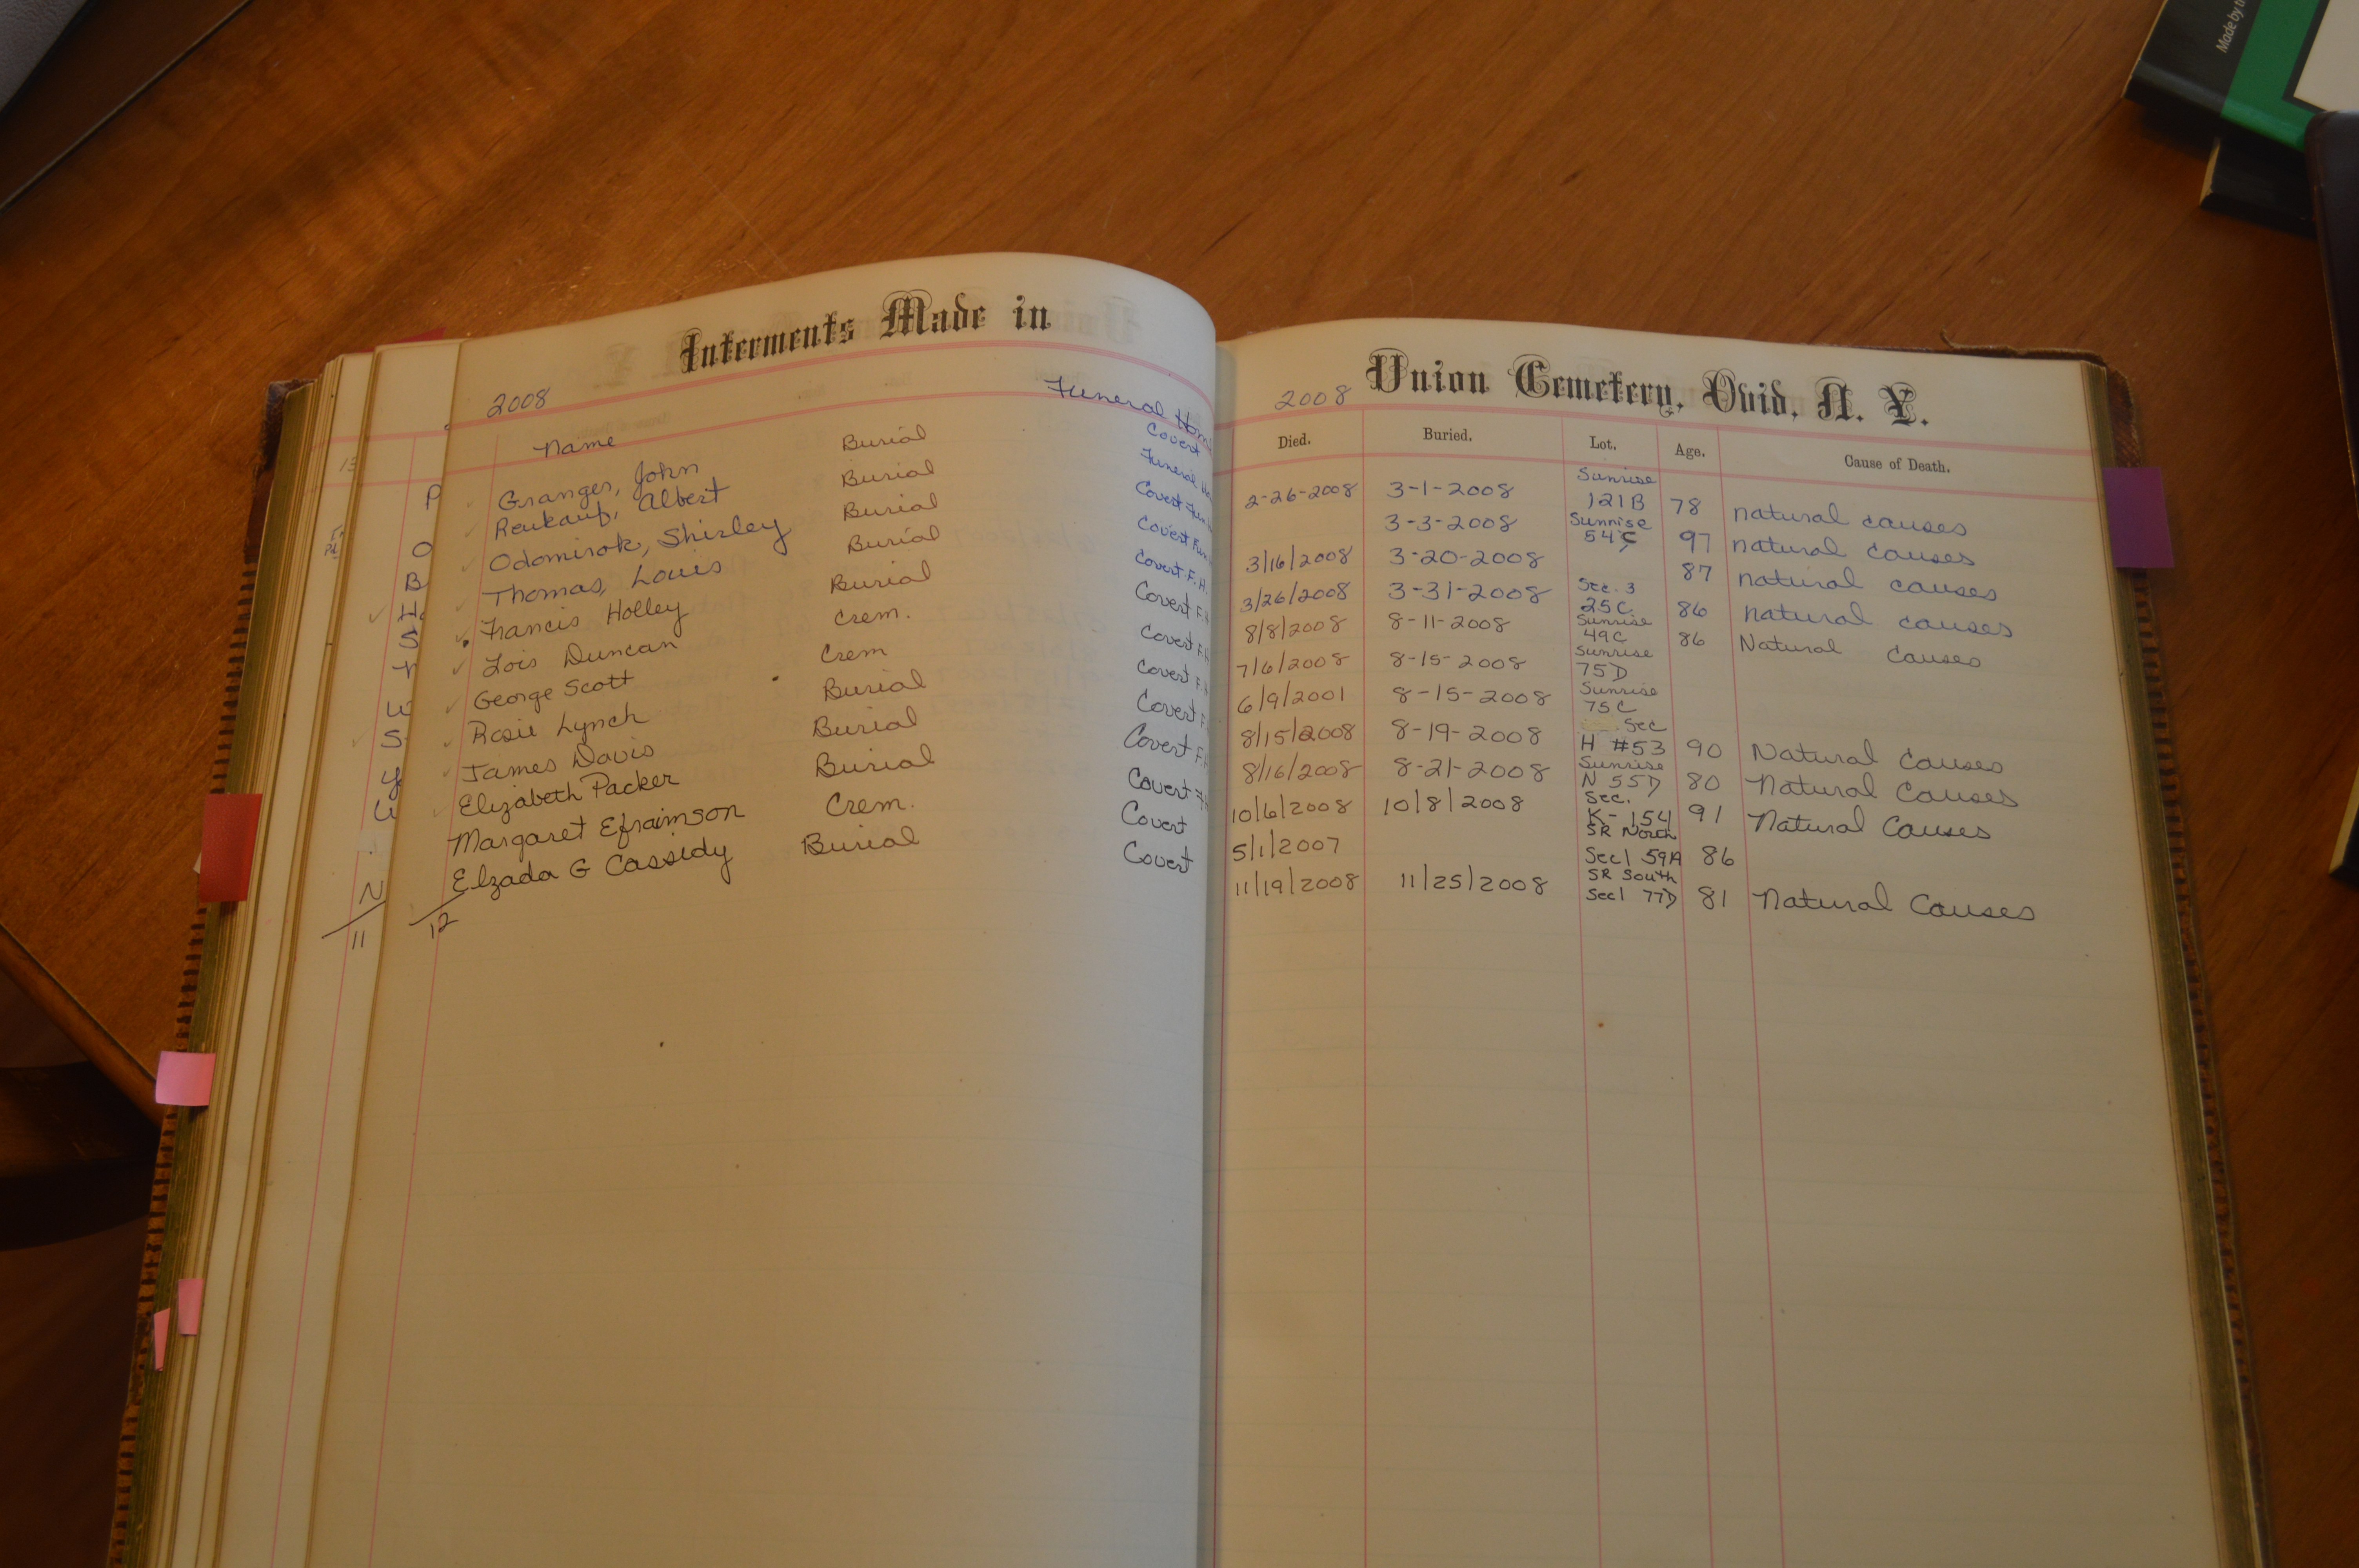 Made by
Interments Made in
2008
Funeral Hom
Name
Granger, John Burial Covert
Reukauf, Albert Burial Funeral
Odomirok, Shirley Burial Covert
Thomas, Louis Burial Covert
Francis Holley Burial Covert F.H.
Lois Duncan Crem. Covert F.
George Scott Crem Covert F.H
Rosie Lynch Burial Covert F.H
James Davis Burial Covert F.
Elizabeth Packer Burial Covert F.
Margaret Efraimson Crem. Covert
Elzada G Cassidy Burial Covert
12
11
P
O
B
H
S
W
S
Y
N
2008 Union Cemetery, Ovid, N. Y.
Died. Buried. Lot. Age. Cause of Death.
2-26-2008 3-1-2008 Sunrise 121B 78 natural causes
3-3-2008 Sunrise 54C 97 natural causes
3/16/2008 3-20-2008 87 natural causes
3/26/2008 3-31-2008 Sec. 3 25C 86 natural causes
8/8/2008 8-11-2008 Sunrise 49C 86 Natural causes
7/6/2008 8-15-2008 Sunrise 75D
6/9/2001 8-15-2008 Sunrise 75C
8/15/2008 8-19-2008 Sec H #53 90 Natural Causes
8/16/2008 8-21-2008 Sunrise N 55D 80 Natural Causes
10/6/2008 10/8/2008 Sec. K-154 91 Natural Causes
5/1/2007 SR North Sec1 59A 86
11/19/2008 11/25/2008 SR South Sec1 77D 81 Natural Causes